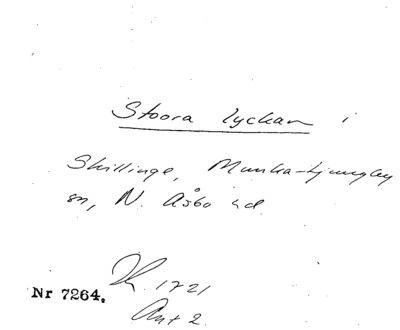 Stoora lyckan i
Skillinge, Munka-Ljungby
sn, N. Åsbo hd.
Nr 7264.
LR. 1721
Ant 2.